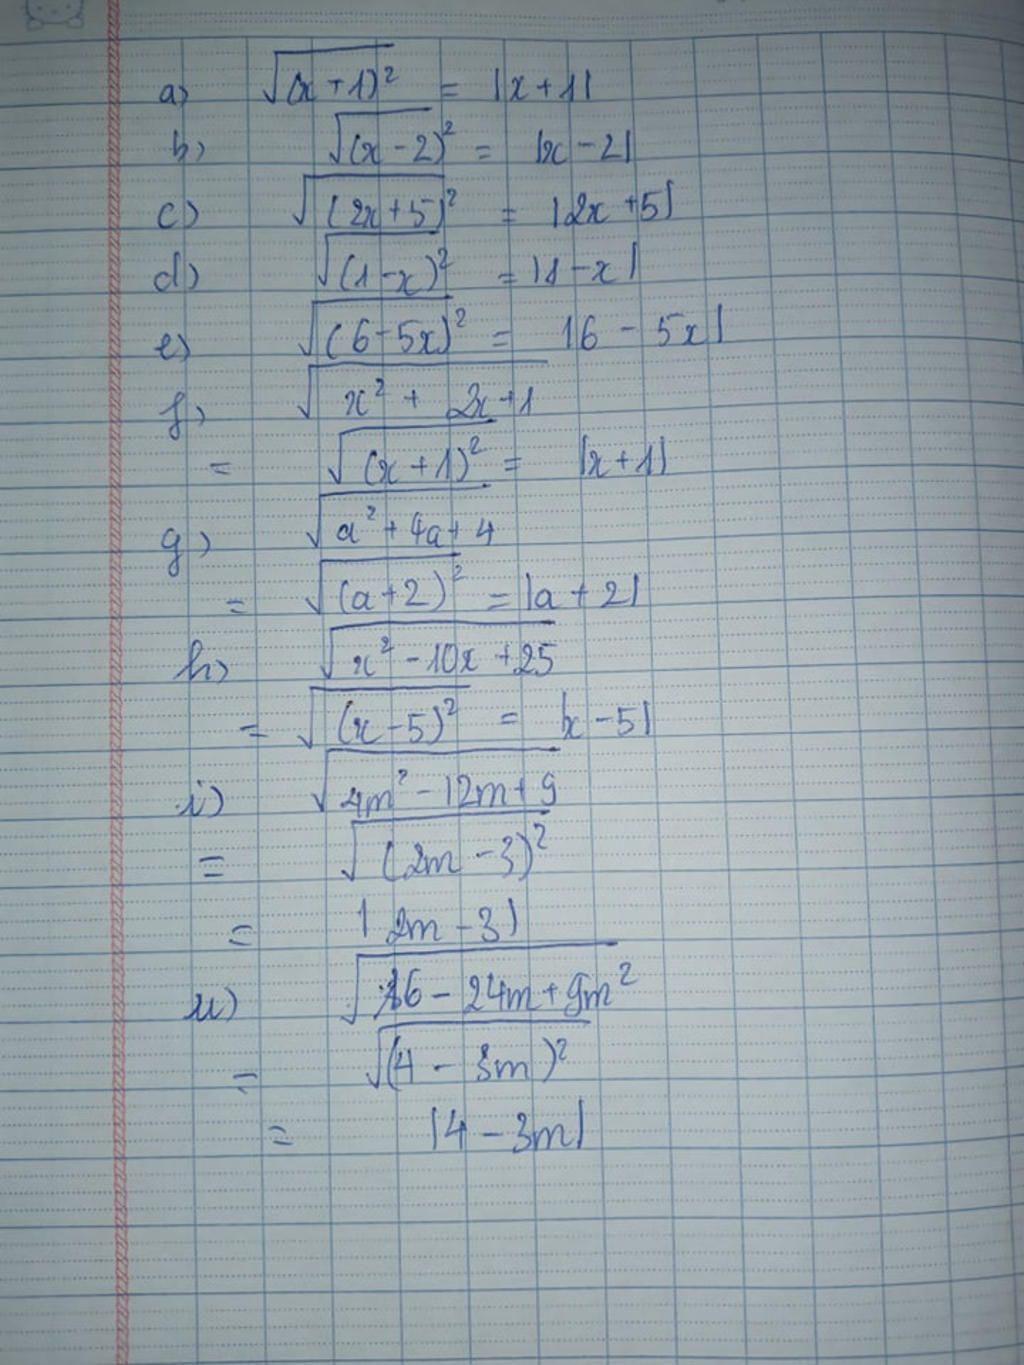 a) √(x+1)² = |x+1|
b) √(x-2)² = |x-2|
c) √(2x+5)² = |2x+5|
d) √(1-x)² = |1-x|
e) √(6-5x)² = |6-5x|
f) √x²+2x+1
= √(x+1)² = |x+1|
g) √a²+4a+4
= √(a+2)² = |a+2|
h) √x²-10x+25
= √(x-5)² = |x-5|
i) √4m²-12m+9
= √(2m-3)²
= |2m-3|
u) √16-24m+9m²
= √(4-3m)²
= |4-3m|